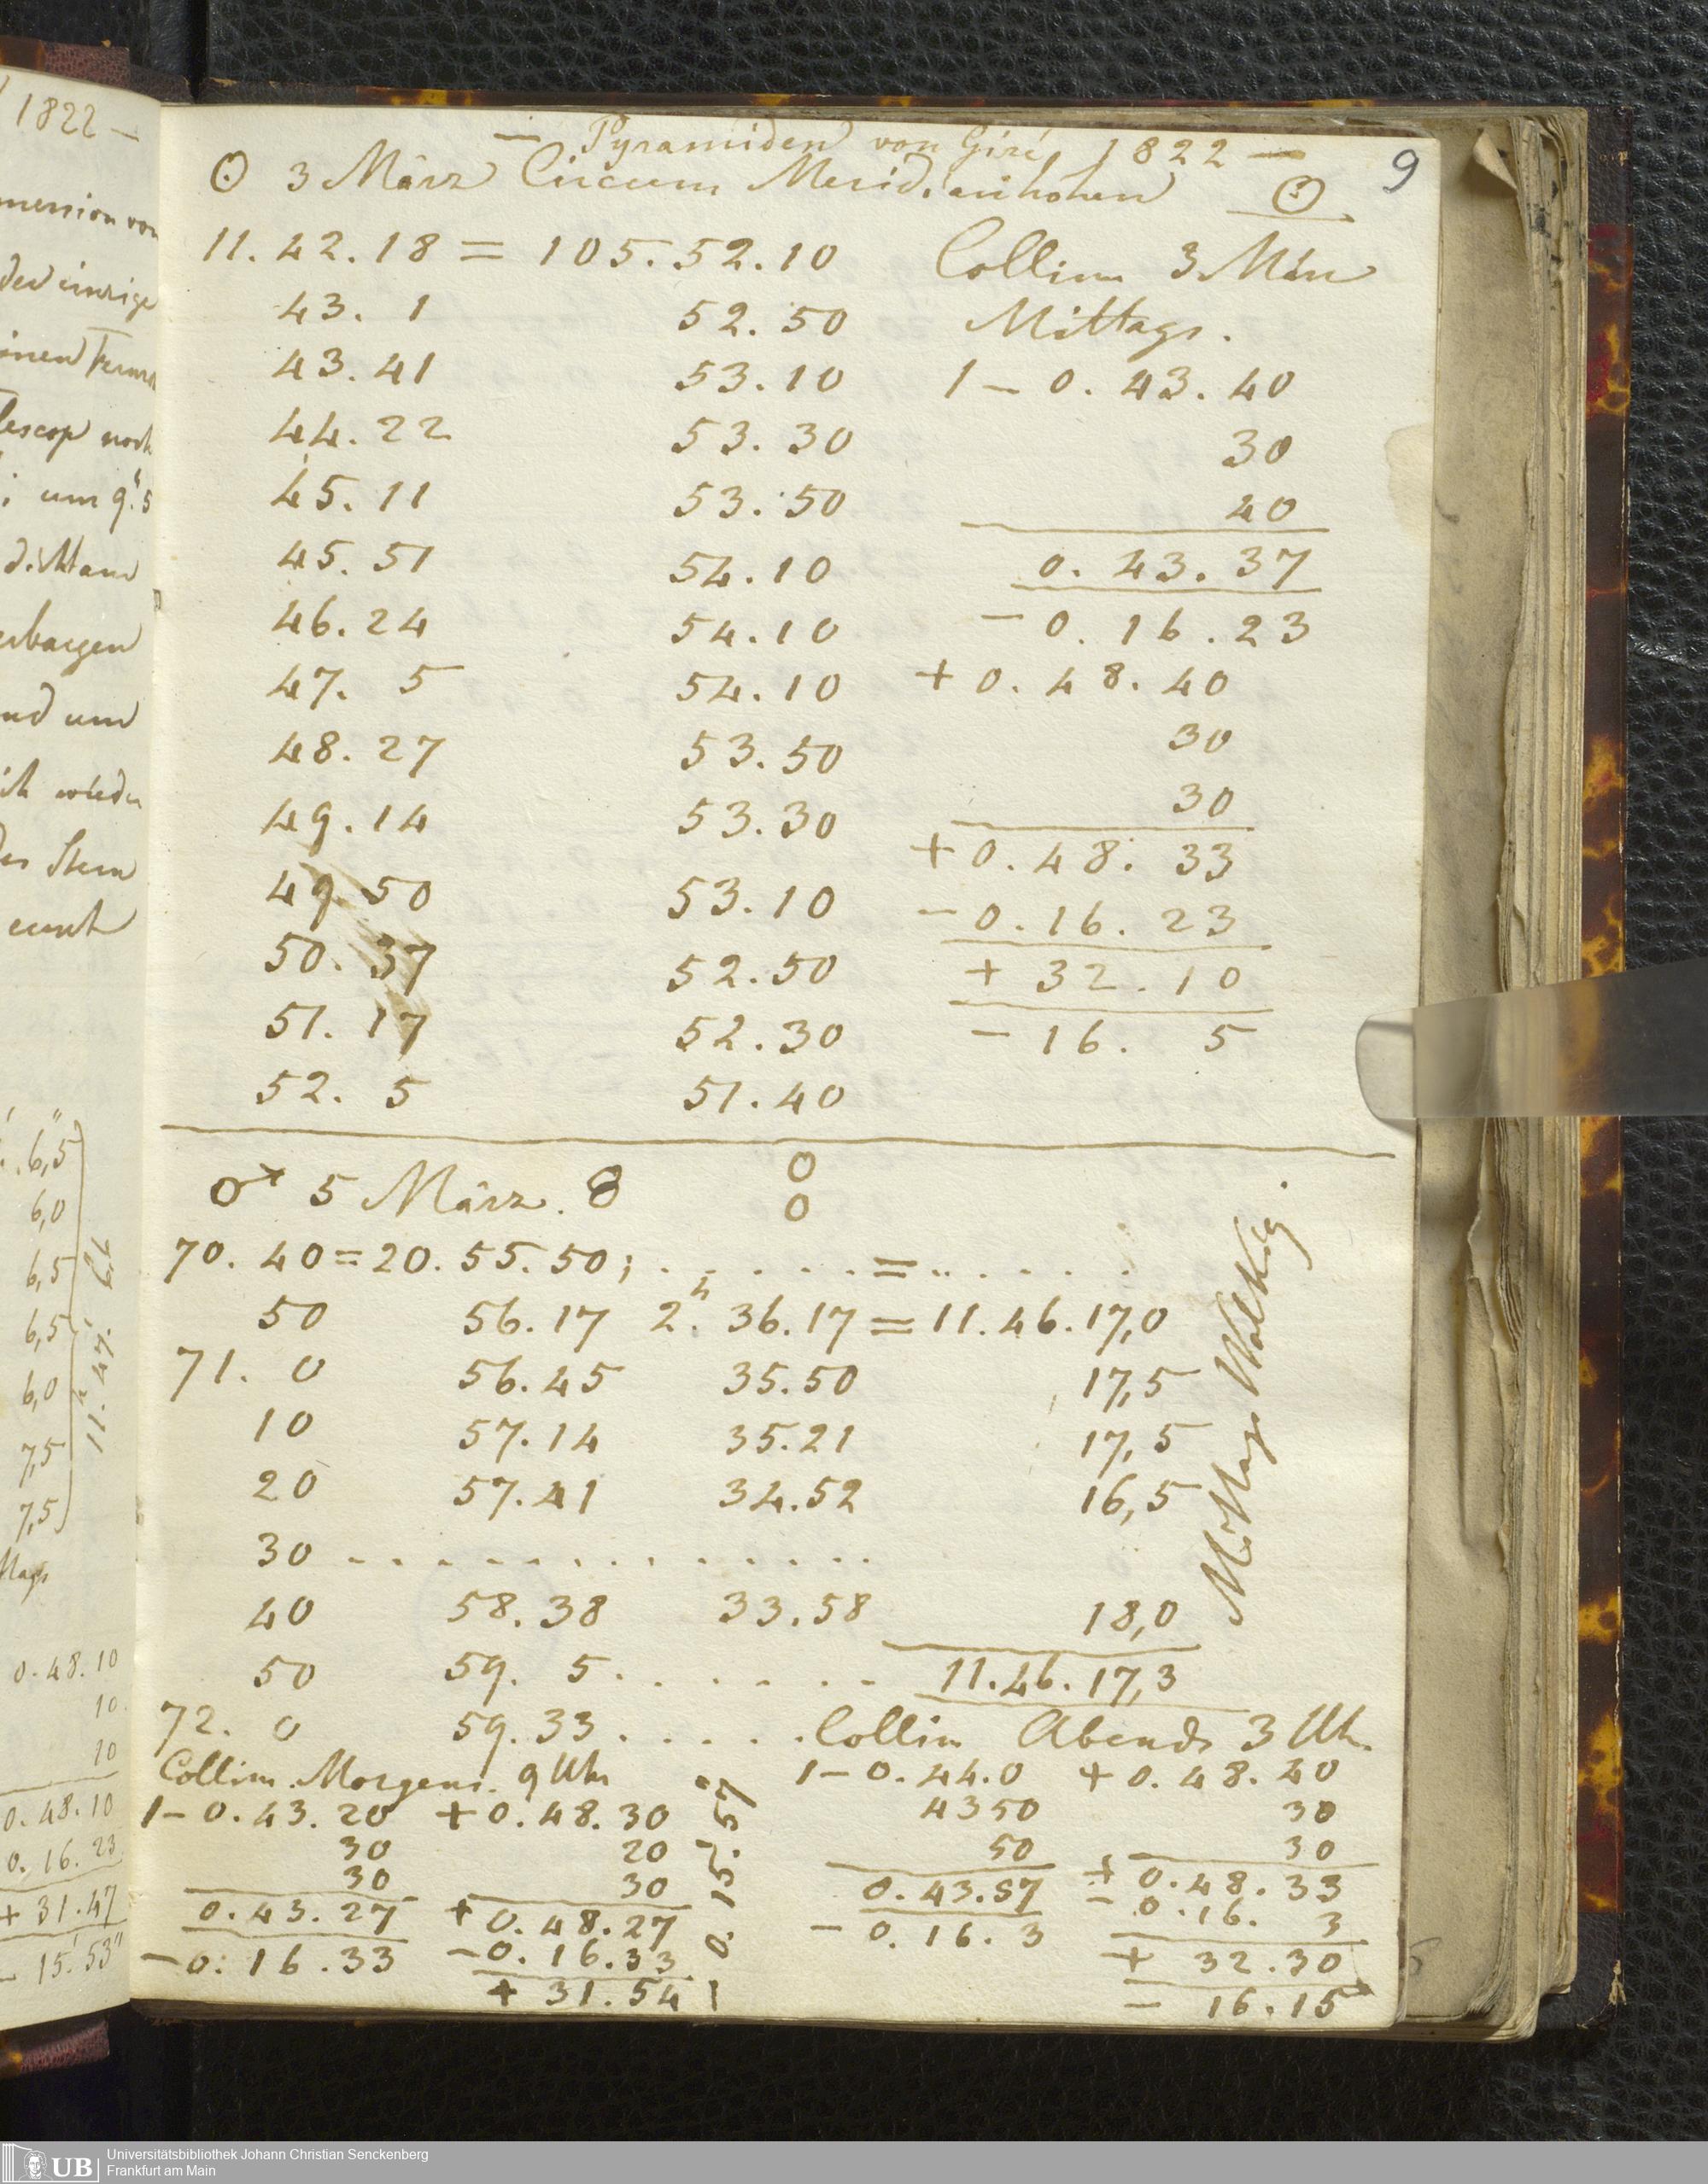 — Pyramiden von Gizé, 1822 — 9
☉ 3 März Circum Meridianhöhen ☉
11.42.18 = 105.52.10 Collim 3 März
43. 1 52.50 Mittags.
43.41 53.10 1 – 0.43.40
44.22 53.30 30
45.11 53.50 40
45.51 54.10 0.43.37
46.24 54.10 – 0.16.23
47. 5 54.10 + 0.48.40
48.27 53.50 30
49.14 53.30 30
49.50 53.10 + 0.48.33
50.37 52.50 – 0.16.23
51.17 52.30 + 32.10
52. 5 51.40 – 16. 5
♂ 5 März. 8 0
0
70.40 = 20.55.50; . . . . . = . . . . . .
50 56.17 2h. 36.17 = 11.46.17,0
71. 0 56.45 35.50 17,5
10 57.14 35.21 17,5
20 57.41 34.52 16,5
30 . . . . . . . . . . . . .
40 58.38 33.58 18,0
50 59. 5 . . . . . . 11.46.17,3
Mittags Wolkig
72. 0 59.33 . . . . . Collim Abends 3 Uh.
Collim. Morgens. 9 Uhr 1 – 0.44.0 + 0.48.40
1 – 0.43.20 + 0.48.30 4350 30
30 20 50 30
30 30 0.43.57 + 0.48.33
0.43.27 + 0.48.27 – 0.16. 3 – 0.16. 3
– 0.16.33 – 0.16.33 + 32.30
+ 31.54 – 16.15
0.15.57
1822 —
um 9h.5
6,5
6,0
6,5
6,5
6,0
7,5
7,5
11.47.
0.48.10
10
10
0.48.10
0.16.23
+ 31.47
– 15.53"
UB Universitätsbibliothek Johann Christian Senckenberg
Frankfurt am Main